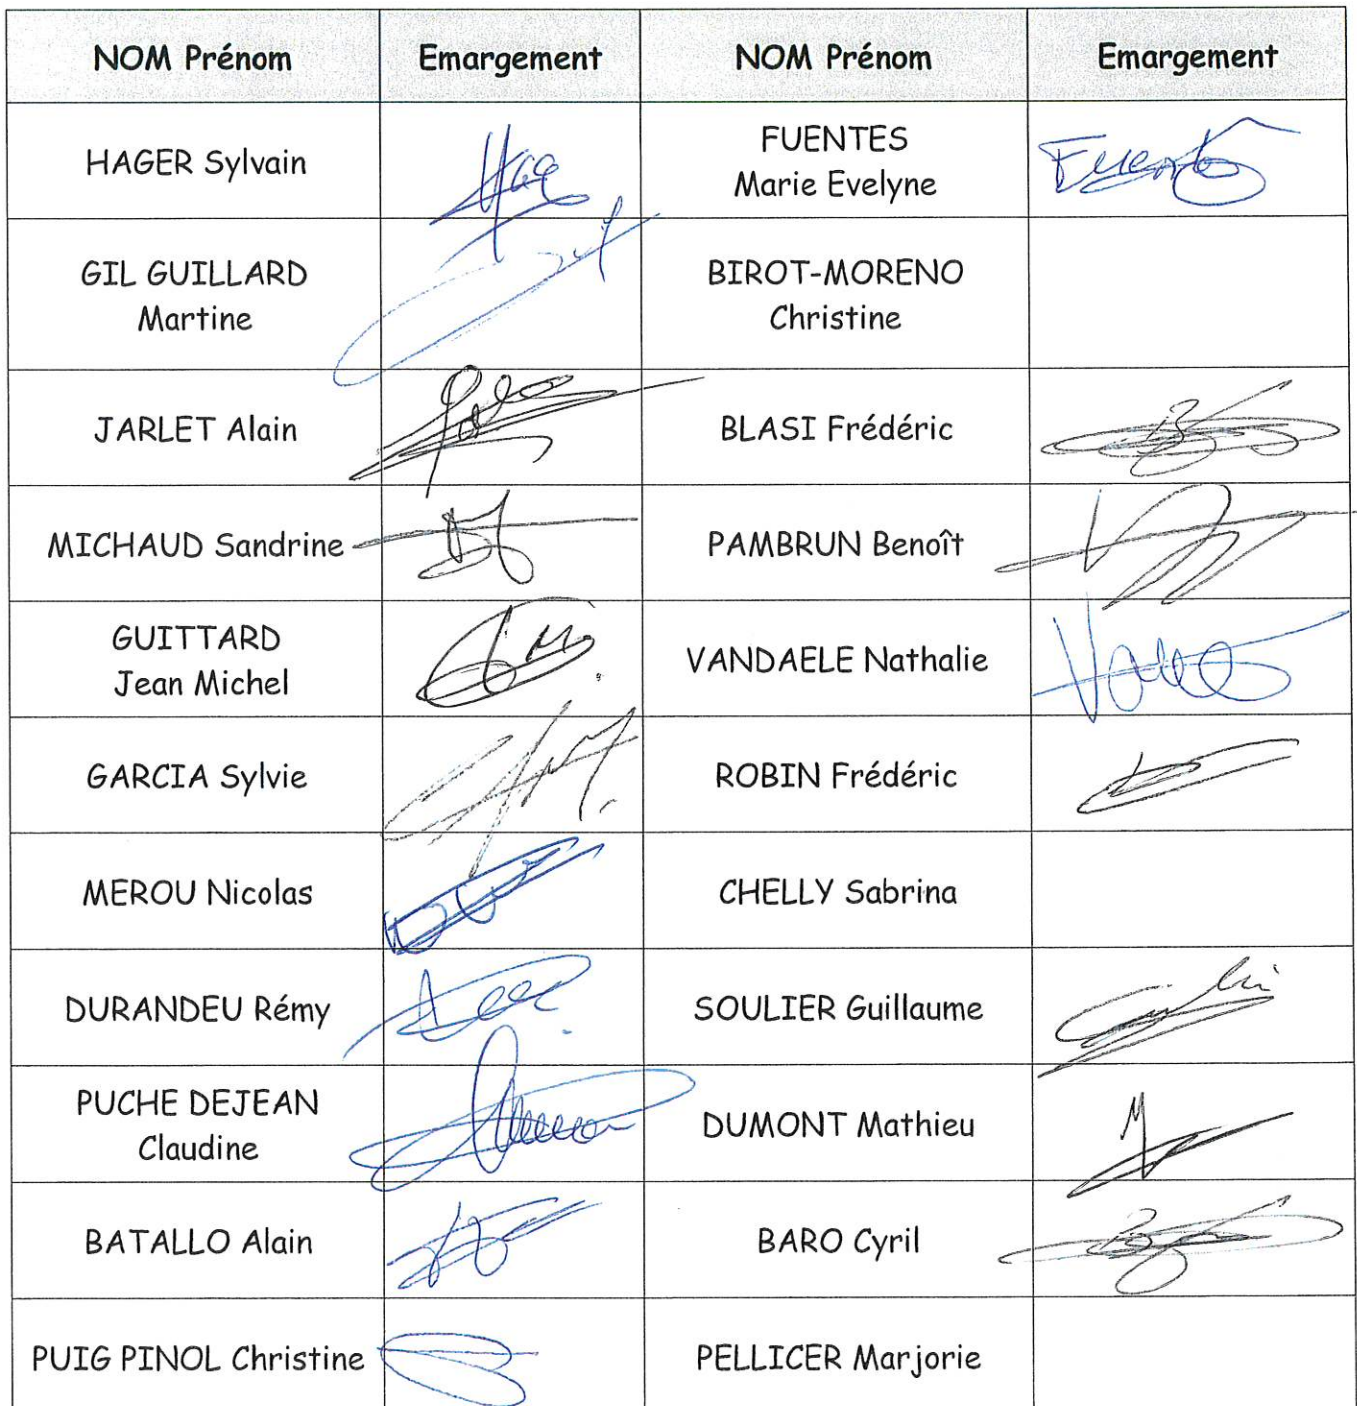 NOM Prénom Emargement NOM Prénom Emargement
HAGER Sylvain FUENTES
Marie Evelyne Fuentes
GIL GUILLARD
Martine BIROT-MORENO
Christine
JARLET Alain BLASI Frédéric
MICHAUD Sandrine PAMBRUN Benoît
GUITTARD
Jean Michel VANDAELE Nathalie
GARCIA Sylvie ROBIN Frédéric
MEROU Nicolas CHELLY Sabrina
DURANDEU Rémy SOULIER Guillaume
PUCHE DEJEAN
Claudine DUMONT Mathieu
BATALLO Alain BARO Cyril
PUIG PINOL Christine PELLICER Marjorie